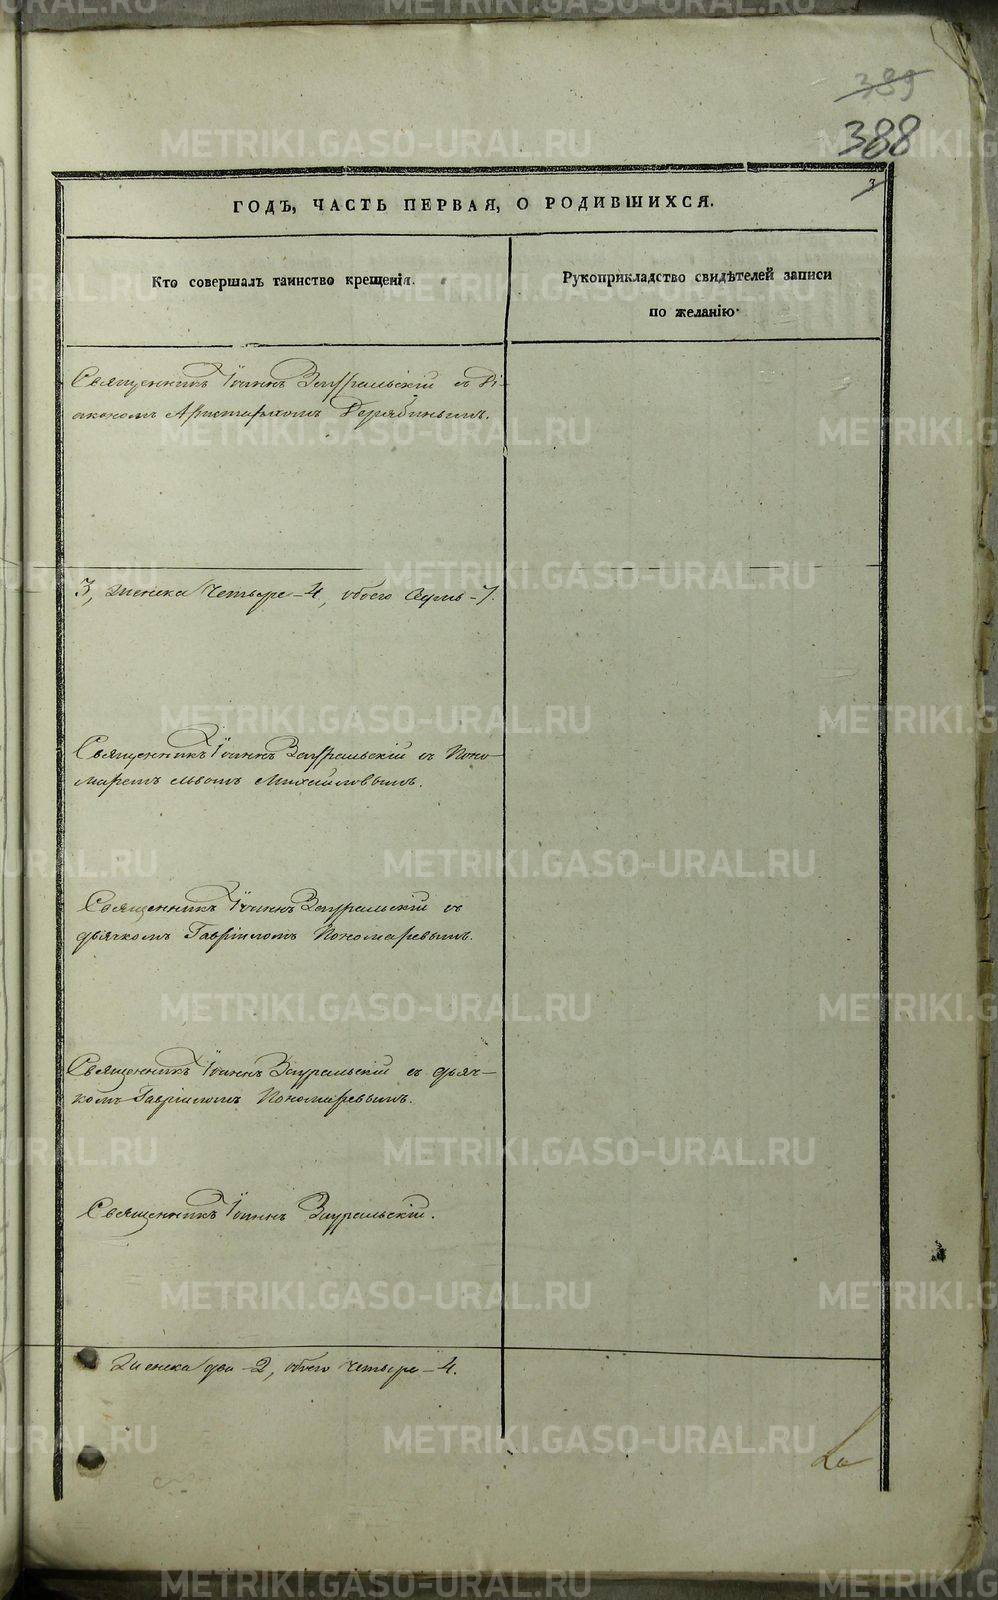 389
388
3
ГОДЪ, ЧАСТЬ ПЕРВАЯ, О РОДИВШИХСЯ.
Кто совершалъ таинство крещенія.
Рукоприкладство свидѣтелей записи
по желанію.
Священникъ Іоаннъ Зауральскій съ Ді-
акономъ Аристархомъ Дерябинымъ.
3, женска четыре-4, обоего Семь-7.
Священникъ Іоаннъ Зауральскій съ Поно-
маремъ Львомъ Михайловымъ.
Священникъ Іоаннъ Зауральскій съ
дьячкомъ Гавріиломъ Пономаревымъ.
Священникъ Іоаннъ Зауральскій съ дьяч-
комъ Гавріиломъ Пономаревымъ.
Священникъ Іоаннъ Зауральскій.
Женска два-2, обоего четыре-4.
METRIKI.GASO-URAL.RU